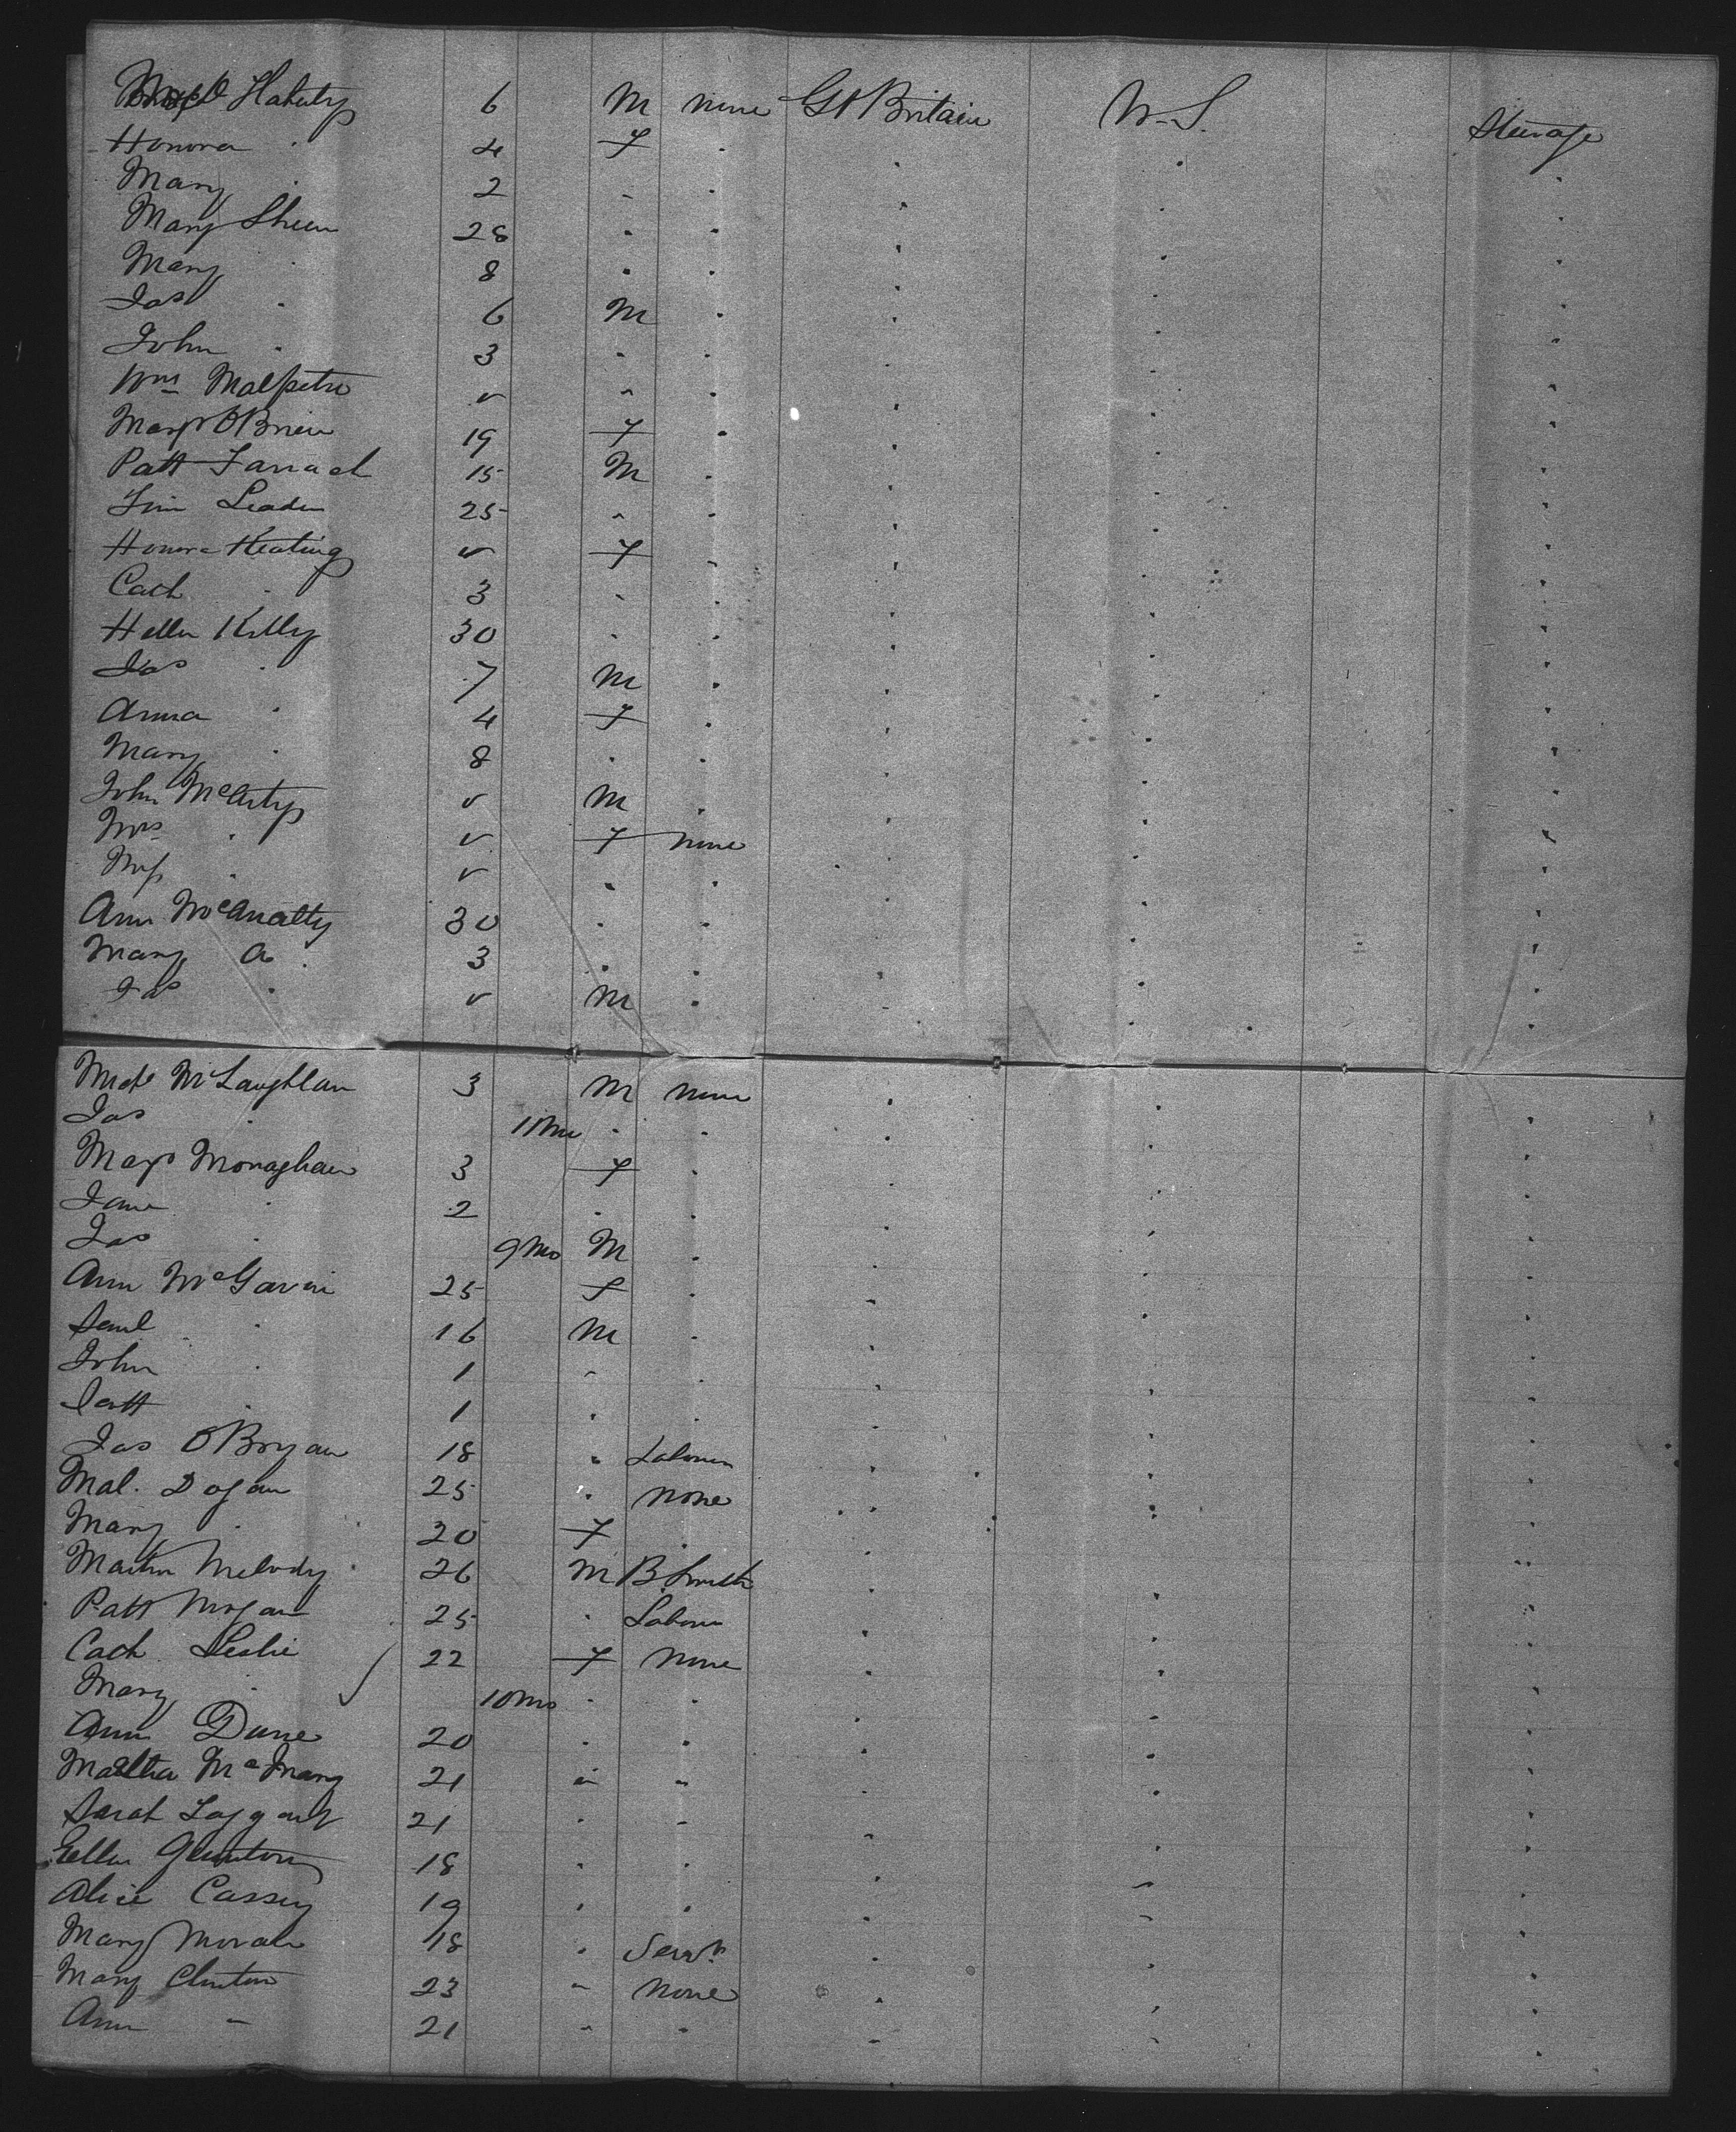 Haherty 6 M none Gt Britain U.S. Steerage
Honora . 4 F . . . .
Mary . 2 . . . . .
Mary Sheen 28 . . . . .
Mary . 8 . . . . .
Jas . 6 M . . . .
John . 3 . . . . .
Wm . . . . .
Margt O'Brien 19 F . . . .
Patt 15 M . . . .
Tim Leaden 25 . . . . .
Honora Keating F . . . .
Cath . 3 . . . . .
Hellen Kelly 30 . . . . .
Jas . 7 M . . . .
Anna . 4 F . . . .
Mary . 8 . . . . .
John McCarty M . . . .
Mrs . F none . . .
Miss . . . . . .
Ann McAnalty 30 . . . . .
Mary A . 3 . . . . .
Jas . M . . . .
Mich McLaughlan 3 M none . . .
Jas . 11 Mo . . . . .
Margt Monaghan 3 F . . . .
Jane . 2 . . . . .
Jas . 9 Mo M . . . .
Ann McGavin 25 F . . . .
Saml . 16 M . . . .
John . 1 . . . . .
Patt . 1 . . . . .
Jas O'Bryan 18 . Laborer . . .
Mal. Dogan 25 . none . . .
Mary . 20 F . . . .
Martin Melody 26 M B. Smith . . .
Patt Mogan 25 . Laborer . . .
Cath Leslie 22 F none . . .
Mary . 10 mo . . . . .
Ann Dunne 20 . . . . .
Martha 21 " " . . .
Sarah Taggart 21 . . . . .
Ellen 18 . . . . .
Alice Cassey 19 . . . . .
Mary Moran 18 . Servt . . .
Mary Clinton 23 " none . . .
Ann " 21 " . . . .